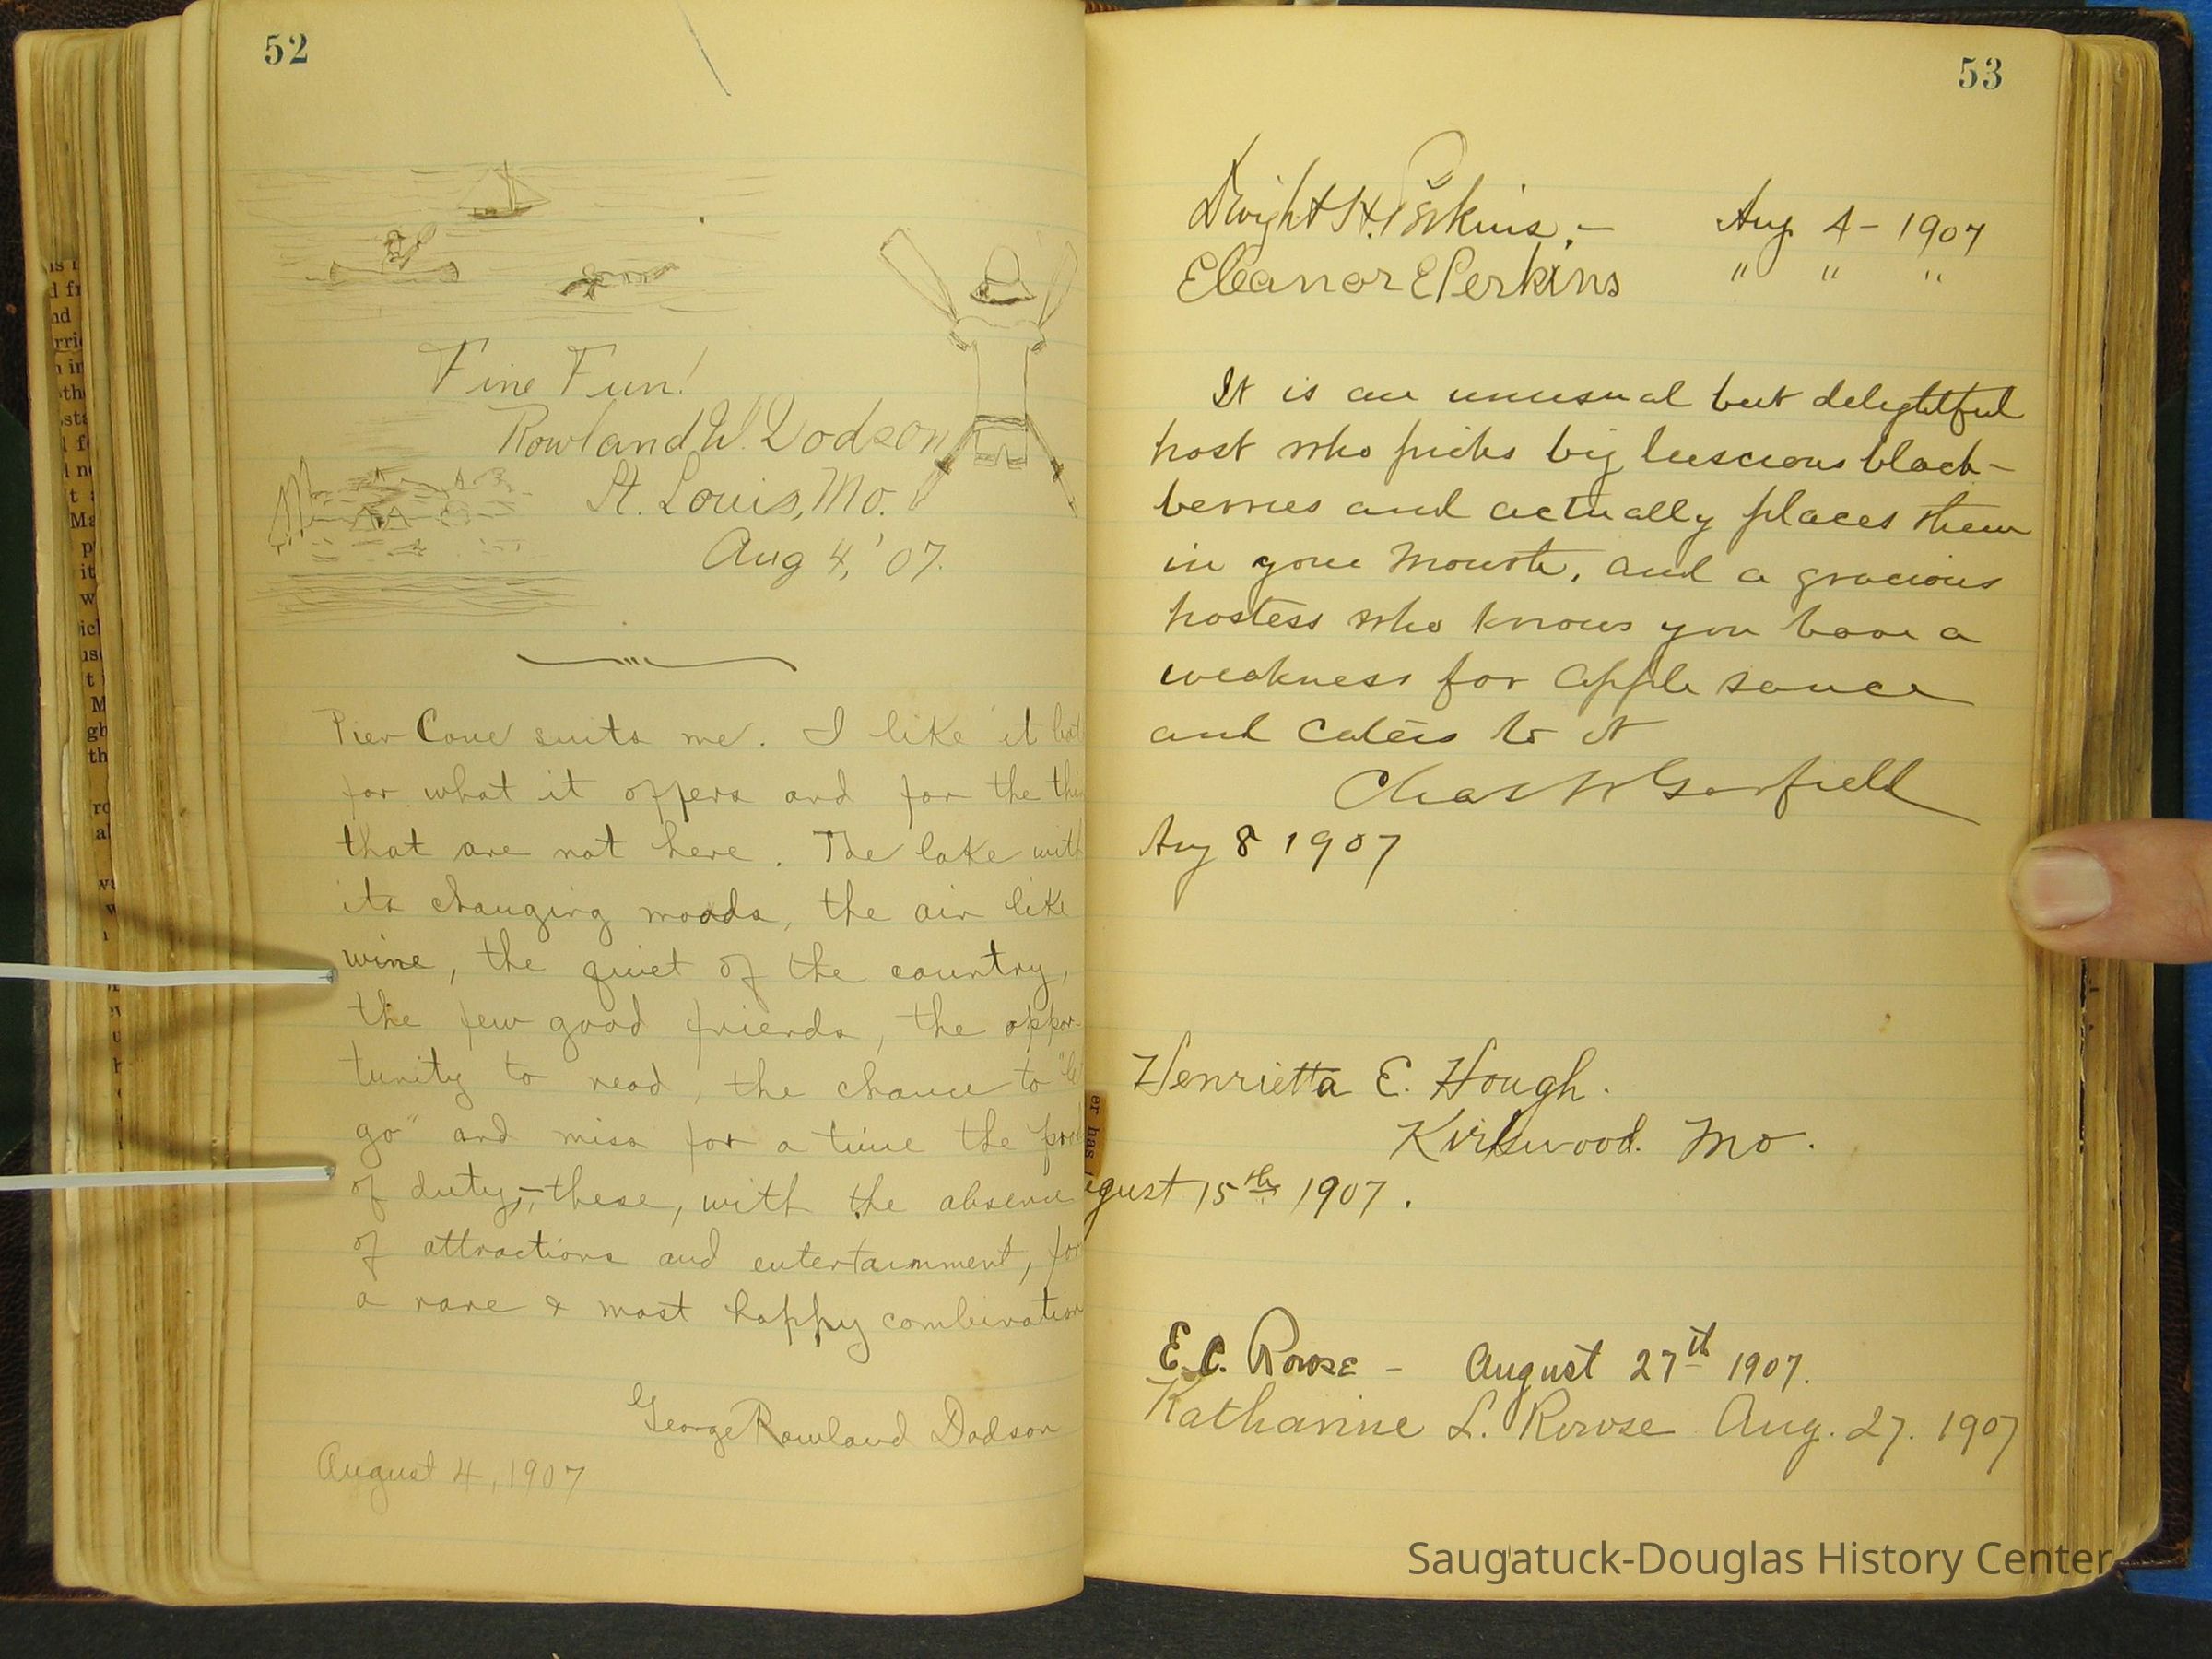 52
Fine Fun!
Rowland W. Dodson
St. Louis, Mo.
Aug 4, '07.
Pier Cove suits me. I like it both
for what it offers and for the thin
that are not here. The lake with
its changing moods, the air like
wine, the quiet of the country,
the few good friends, the oppor-
tunity to read, the chance to "let
go" and miss for a time the
of duty,- these, with the absence
of attractions and entertainment, for
a rare & most happy combination
George Rowland Dodson
August 4, 1907
53
Dwight H. Perkins,- Aug 4- 1907
Eleanor E Perkins " " "
It is an unusual but delightful
host who picks big luscious black-
berries and actually places them
in your mouth, and a gracious
hostess who knows you have a
weakness for apple sauce
and caters to it
Chas W Garfield
Aug 8 1907
Henrietta E. Hough.
Kirkwood. Mo.
gust 15th 1907.
E. C. Rowse - August 27th 1907.
Katharine L. Rowse Aug. 27. 1907
er has
Saugatuck-Douglas History Center